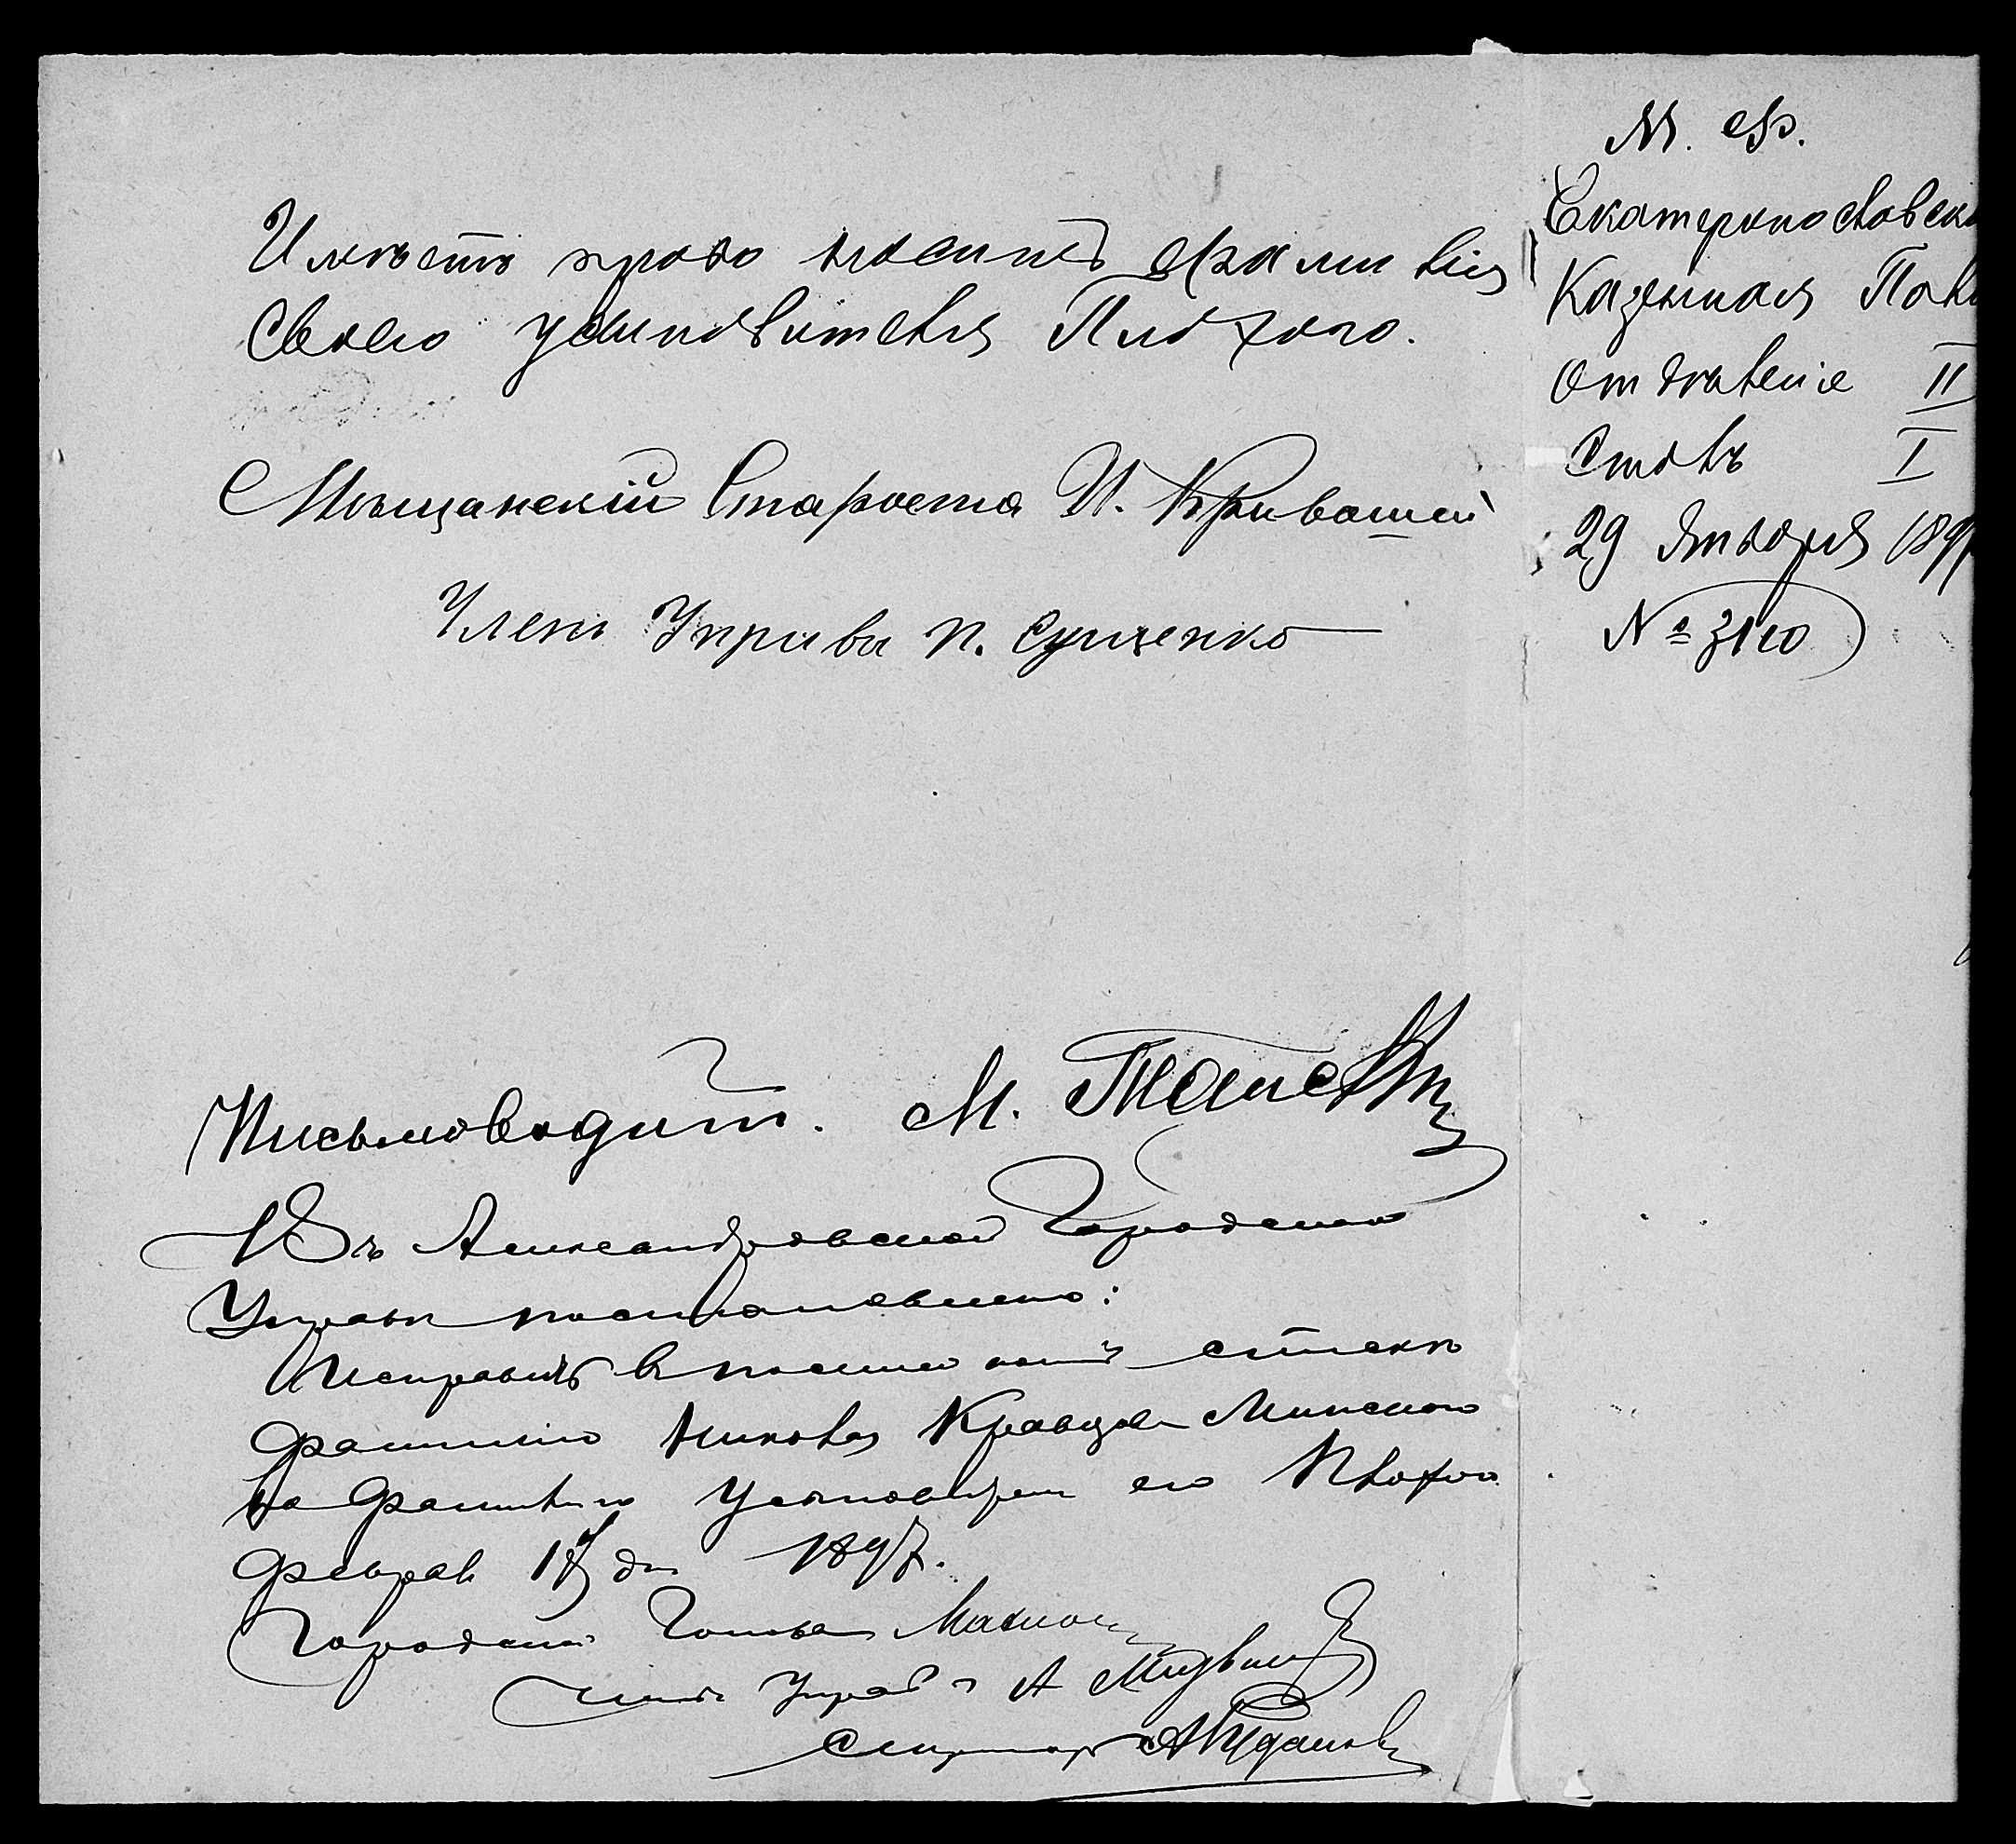 Имѣетъ право носить фамилію
своего усыновителя Плохого.
Мѣщанскій Староста И. Кривошей
Членъ Управы П. Сущенко
Письмоводит. М.
Въ Александровской Городской
Управѣ постановлено:
Исправить въ посемейномъ спискѣ
фамилію Николая Кравцова Минского
на фамилію усыновителя его Плохого
Февраля 17 дня 1897.
Городской Голова
Членъ Управы А
Секретарь
М. Ф.
Екатеринославска
Казенная Пала
Отдѣленіе II
Столъ I
29 Января 189
№ 3110